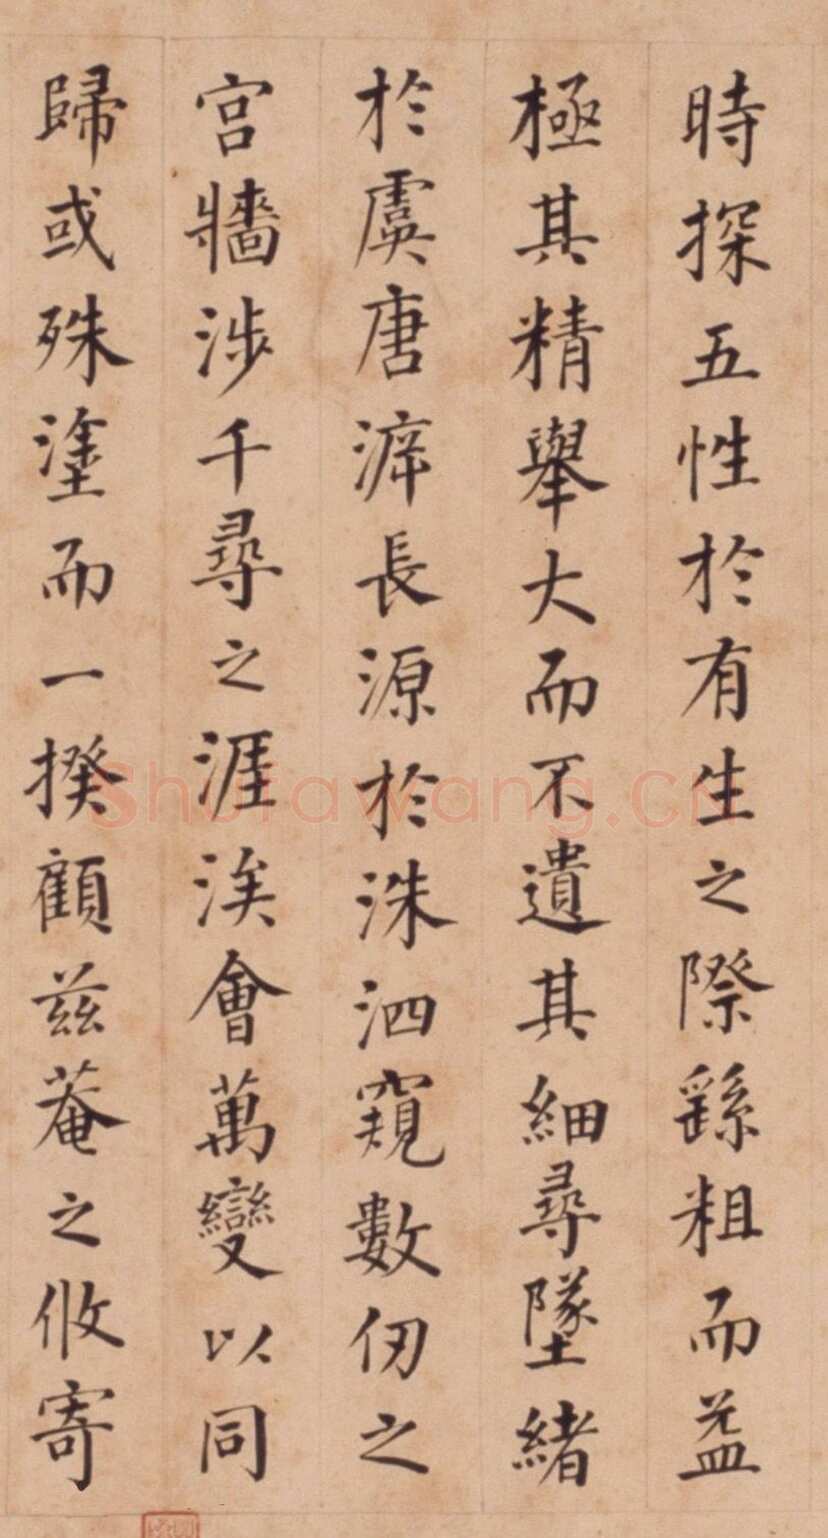 時探五性於有生之際繇粗而益
極其精舉大而不遺其細尋墜緒
於虞唐滓長源於洙泗窺數仞之
宫牆涉千尋之涯涘會萬變以同
歸或殊塗而一揆顧兹菴之攸寄
Shufawang.CN